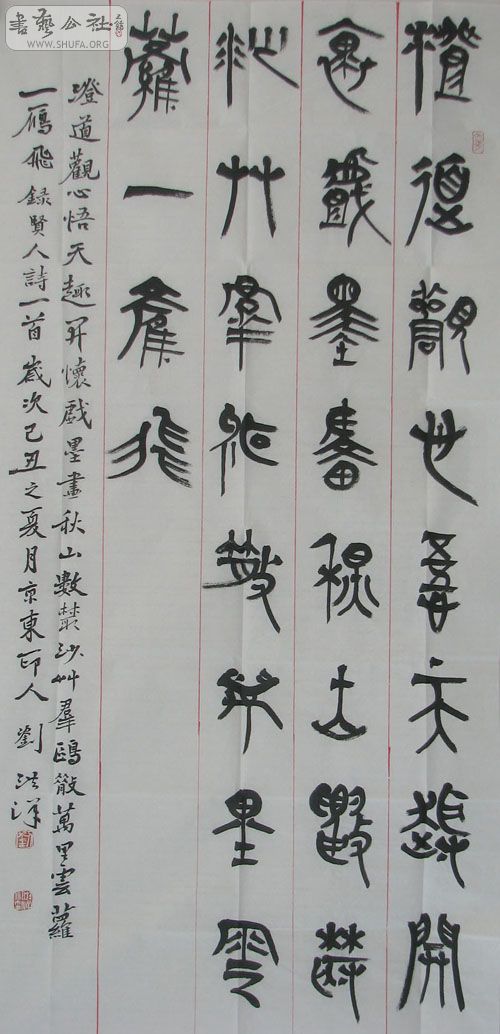 澄道觀心悟天趣開
懷戲墨畫秋山數叢
沙艸羣鷗散萬里雲
蘿一雁飛
澄道觀心悟天趣开懷戲墨畫秋山數叢沙艸羣鷗散萬里雲蘿
一鴈飛錄賢人詩一首歲次己丑之夏月京東印人劉洪洋
書藝公社
WWW.SHUFA.ORG